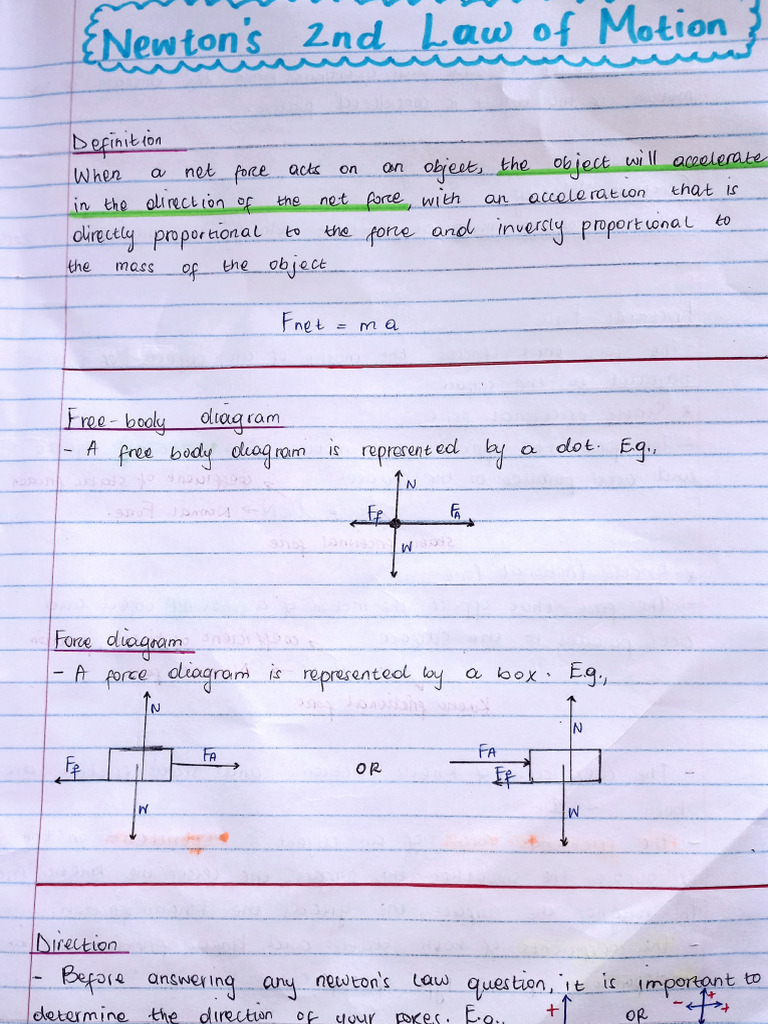 Newton's 2nd Law of Motion
Definition
When a net force acts on an object, the object will accelerate
in the direction of the net force, with an acceleration that is
directly proportional to the force and inversly proportional to
the mass of the object
Fnet = ma
Free-body diagram
- A free body diagram is represented by a dot. E.g.,
N
Ff FA
W
Force diagram
- A force diagram is represented by a box. E.g.,
N N
Ff FA OR FA Ff
W W
Direction
- Before answering any newton's Law question, it is important to
determine the direction of your forces. E.g., + OR - + +